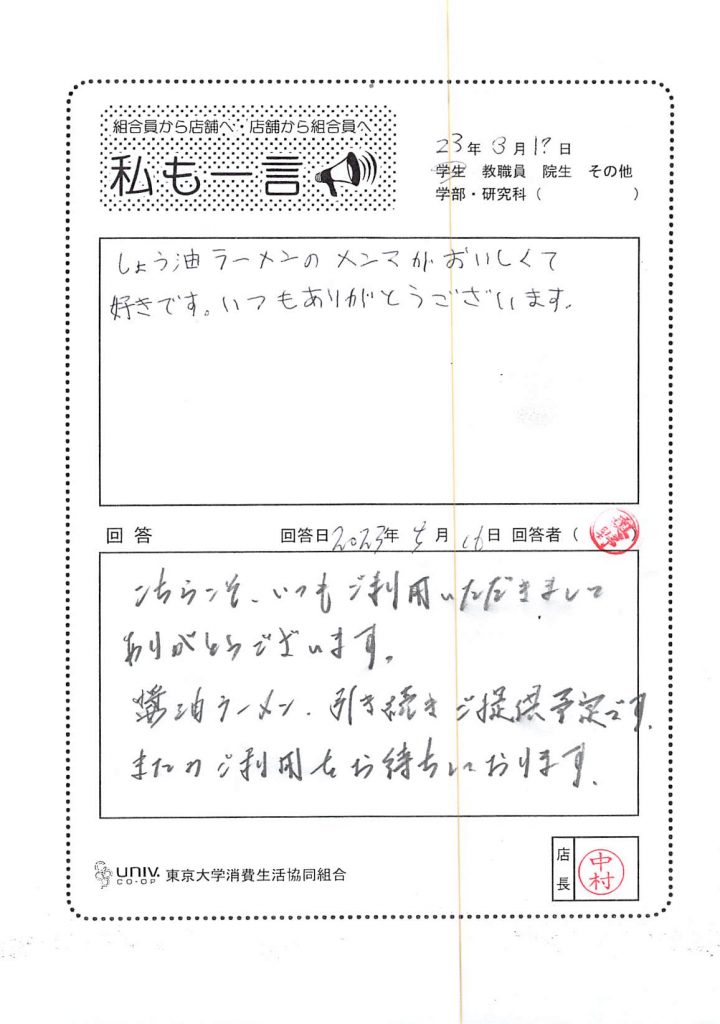 組合員から店舗へ・店舗から組合員へ
私も一言
23年3月17日
学生 教職員 院生 その他
学部・研究科( )
しょう油ラーメンのメンマがおいしくて
好きです。いつもありがとうございます。
回答 回答日2023年5月16日 回答者(
こちらこそ、いつもご利用いただきまして
ありがとうございます。
醤油ラーメン、引き続きご提供予定です。
またのご利用をお待ちしております。
UNIV. CO-OP 東京大学消費生活協同組合
店長 中村